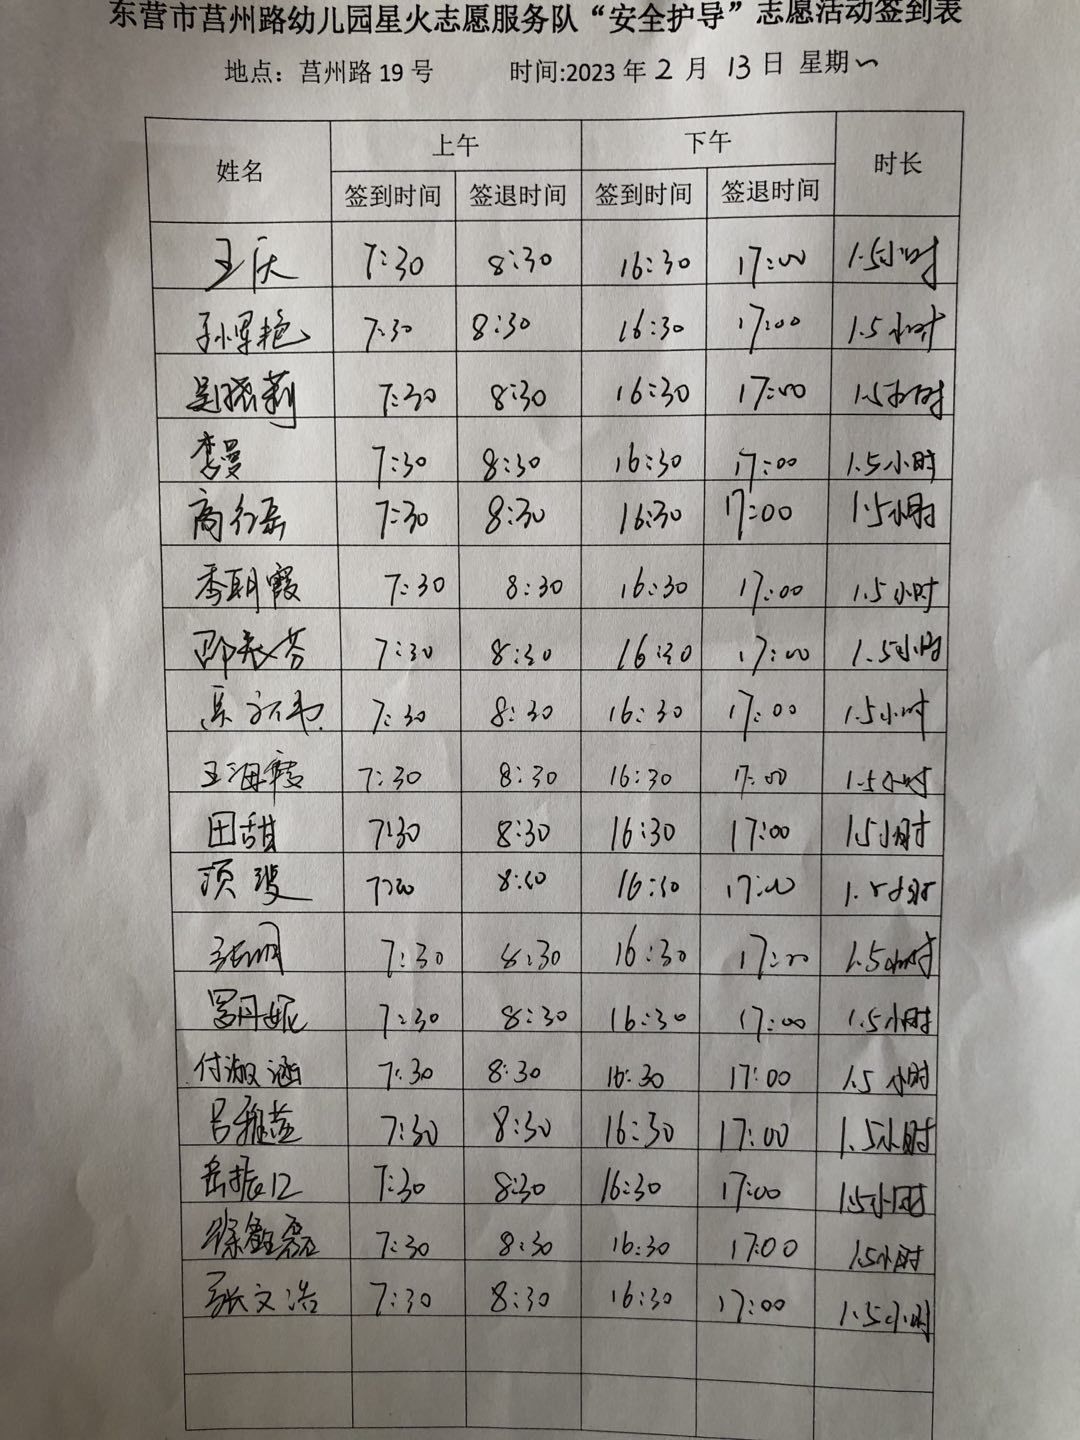 东营市莒州路幼儿园星火志愿服务队“安全护导”志愿活动签到表
地点：莒州路19号 时间:2023年2月13日 星期一
姓名 上午 下午 时长
签到时间 签退时间 签到时间 签退时间
王庆 7:30 8:30 16:30 17:00 1.5小时
孙军艳 7:30 8:30 16:30 17:00 1.5小时
吴晓莉 7:30 8:30 16:30 17:00 1.5小时
李曼 7:30 8:30 16:30 17:00 1.5小时
商行岳 7:30 8:30 16:30 17:00 1.5小时
季朝霞 7:30 8:30 16:30 17:00 1.5小时
邵 芬 7:30 8:30 16:30 17:00 1.5小时
7:30 8:30 16:30 17:00 1.5小时
王海霞 7:30 8:30 16:30 17:00 1.5小时
田甜 7:30 8:30 16:30 17:00 1.5小时
7:30 8:30 16:30 17:00 1.5小时
7:30 8:30 16:30 17:00 1.5小时
罗丹妮 7:30 8:30 16:30 17:00 1.5小时
付淑涵 7:30 8:30 16:30 17:00 1.5小时
吕雅益 7:30 8:30 16:30 17:00 1.5小时
岳振江 7:30 8:30 16:30 17:00 1.5小时
徐鑫磊 7:30 8:30 16:30 17:00 1.5小时
张文浩 7:30 8:30 16:30 17:00 1.5小时